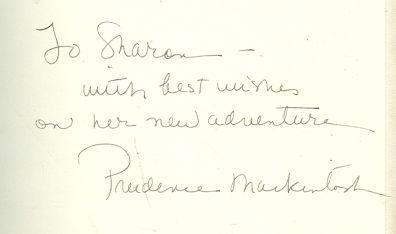 To Sharon —
with best wishes
on her new adventure
Prudence Mackintosh